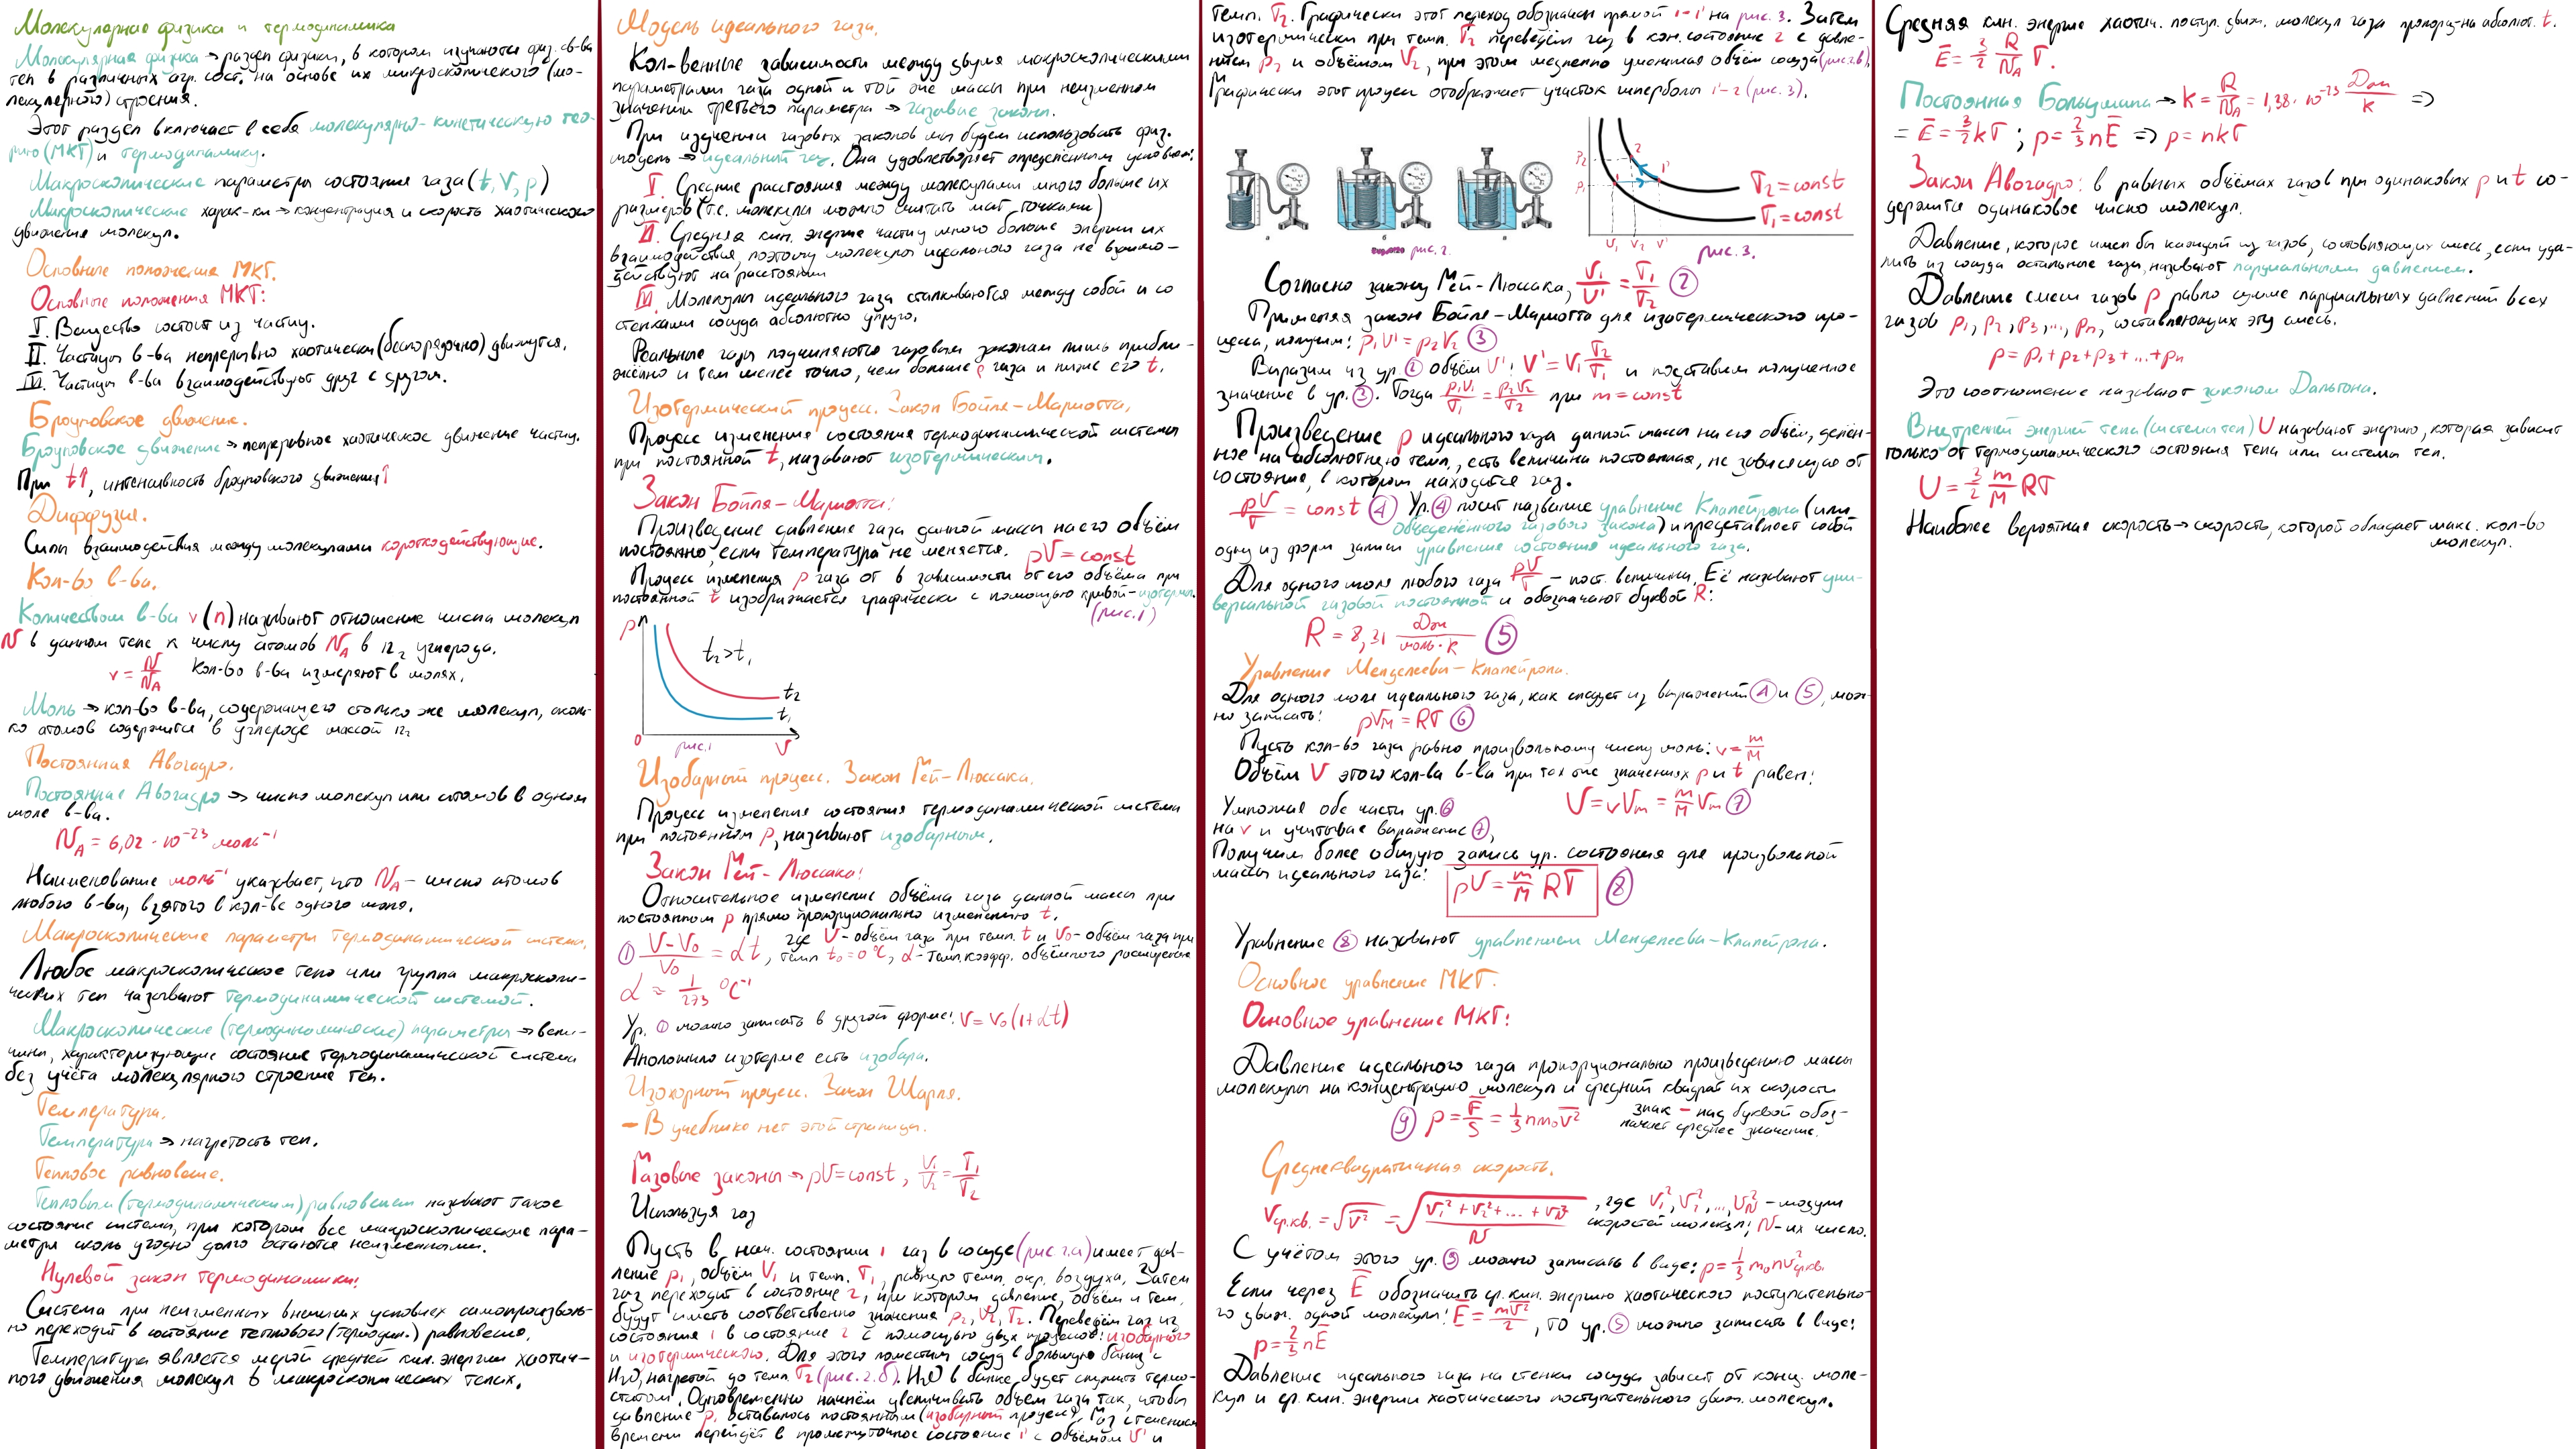 Молекулярная физика и термодинамика
Молекулярная физика → раздел физики, в котором изучаются физ. св-ва
тел в различных агр. сост. на основе их микроскопического (мо-
лекулярного) строения.
Этот раздел включает в себя молекулярно-кинетическую тео-
рию (МКТ) и термодинамику.
Макроскопические параметры состояния газа (t, V, p)
Микроскопические харак-ки → концентрация и скорость хаотического
движения молекул.
Основные положения МКТ.
Основные положения МКТ:
I. Вещество состоит из частиц.
II. Частицы в-ва непрерывно хаотически (беспорядочно) движутся.
III. Частицы в-ва взаимодействуют друг с другом.
Броуновское движение.
Броуновское движение → непрерывное хаотическое движение частиц.
При t↑, интенсивность броуновского движения↑
Диффузия.
Силы взаимодействия между молекулами короткодействующие.
Кол-во в-ва.
Количеством в-ва ν (n) называют отношение числа молекул
N в данном теле к числу атомов NA в 12 г углерода.
ν = N/NA Кол-во в-ва измеряют в молях.
Моль → кол-во в-ва, содержащего столько же молекул, сколь-
ко атомов содержится в углероде массой 12 г
Постоянная Авогадро.
Постоянная Авогадро → число молекул или атомов в одном
моле в-ва.
NA = 6,02 · 10⁻²³ моль⁻¹
Наименование моль⁻¹ указывает, что NA – число атомов
любого в-ва, взятого в кол-ве одного моля.
Макроскопические параметры термодинамической системы.
Любое макроскопическое тело или группа макроскопи-
ческих тел называют термодинамической системой.
Макроскопические (термодинамические) параметры → вели-
чины, характеризующие состояние термодинамической системы
без учёта молекулярного строения тел.
Температура.
Температура → нагретость тел.
Тепловое равновесие.
Тепловым (термодинамическим) равновесием называют такое
состояние системы, при котором все макроскопические пара-
метры сколь угодно долго остаются неизменными.
Нулевой закон термодинамики:
Система при неизменных внешних условиях самопроизволь-
но переходит в состояние теплового (термодин.) равновесия.
Температура является мерой средней кин. энергии хаотич-
ного движения молекул в макроскопических телах.
Модель идеального газа.
Кол-венные зависимости между двумя макроскопическими
параметрами газа одной и той же массы при неизменном
значении третьего параметра → газовые законы.
При изучении газовых законов мы будем использовать физ.
модель → идеальный газ. Она удовлетворяет определённым условиям:
I. Средние расстояния между молекулами много больше их
размеров (т.е. молекулы можно считать мат. точками)
II. Средняя кин. энергия частиц много больше энергии их
взаимодействия, поэтому молекулы идеального газа не взаимо-
действуют на расстоянии
III. Молекулы идеального газа сталкиваются между собой и со
стенками сосуда абсолютно упруго.
Реальные газы подчиняются газовым законам лишь прибли-
жённо и тем менее точно, чем больше p газа и ниже его t.
Изотермический процесс. Закон Бойля–Мариотта.
Процесс изменения состояния термодинамической системы
при постоянной t, называют изотермическим.
Закон Бойля–Мариотта:
Произведение давления газа данной массы на его объём
постоянно, если температура не меняется. pV = const
Процесс изменения p газа от в зависимости от его объёма при
постоянной t изображается графически с помощью кривой – изотермы.
(рис.1)
p
t₂ > t₁
t₂
t₁
0 рис.1 V
Изобарный процесс. Закон Гей-Люссака.
Процесс изменения состояния термодинамической системы
при постоянном p, называют изобарным.
Закон Гей-Люссака:
Относительное изменение объёма газа данной массы при
постоянном p прямо пропорционально изменению t.
① (V–V₀)/V₀ = αt, где V – объём газа при темп. t и V₀ – объём газа при
темп t₀ = 0 °C, α – темп. коэфф. объёмного расширения
α ≈ 1/273 °C⁻¹
Ур. ① можно записать в другой форме: V = V₀(1+αt)
Аноложино изотерме есть изобара.
Изохорный процесс. Закон Шарля.
– В учебнике нет этой страницы.
Газовые законы → pV = const, V₁/V₂ = T₁/T₂
Используя газ
Пусть в нач. состоянии 1 газ в сосуде (рис 2.а) имеет дав-
ление p₁, объём V₁ и темп. T₁, равную темп. окр. воздуха. Затем
газ переходит в состояние 2, при котором давление, объём и тем.
будут иметь соответственно значения p₂, V₂, T₂. Переведём газ из
состояния 1 в состояние 2 с помощью двух процессов: изобарного
и изотермического. Для этого поместим сосуд в большую банку с
H₂O, нагретой до темп T₂ (рис. 2.б). H₂O в банке будет служить термо-
статом. Одновременно начнём увеличивать объём газа так, чтобы
давление p₁ оставалось постоянным (изобарный процесс). Газ с течением
времени перейдёт в промежуточное состояние 1' с объёмом V' и
темп. T₂. Графически этот переход обозначен прямой 1–1' на рис. 3. Затем
изотермически при темп. T₂ переведём газ в кон. состояние 2 с давле-
нием p₂ и объёмом V₂, при этом медленно уменьшая объём сосуда (рис 2.в)
Графически этот процесс отображает участок гиперболы 1'–2 (рис. 3).
p₂
p₁
2
1
1'
T₂ = const
T₁ = const
V₁ V₂ V'
рис. 2.
рис. 3.
Согласно закону Гей-Люссака, V₁/V' = T₁/T₂ ②
Применяя закон Бойля–Мариотта для изотермического про-
цесса, получим: p₁V' = p₂V₂ ③
Выразим из ур. ② объём V': V' = V₁ T₂/T₁ и подставим полученное
значение в ур. ③. Тогда p₁V₁/T₁ = p₂V₂/T₂ при m = const
Произведение p идеального газа данной массы на его объём, делён-
ное на абсолютную темп., есть величина постоянная, не зависящая от
состояния, в котором находится газ.
pV/T = const ④ Ур. ④ носит название уравнение Клапейрона (или
объеденённого газового закона) и представляет собой
одну из форм записи уравнения состояния идеального газа.
Для одного моля любого газа pV/T – пост. величина. Её называют уни-
версальной газовой постоянной и обозначают буквой R:
R = 8,31 Дж/(моль·К) ⑤
Уравнение Менделеева–Клапейрона.
Для одного моля идеального газа, как следует из выражений ④ и ⑤, мож-
но записать: pVм = RT ⑥
Пусть кол-во газа равно произвольному числу моль: ν = m/M
Объём V этого кол-ва в-ва при тех же значениях p и t равен:
Умножая обе части ур. ⑥ V = νVm = m/M Vm ⑦
на ν и учитывая выражение ⑦,
Получим более общую запись ур. состояния для произвольной
массы идеального газа: pV = m/M RT ⑧
Уравнение ⑧ называют уравнением Менделеева–Клапейрона.
Основное уравнение МКТ.
Основное уравнение МКТ:
Давление идеального газа пропорционально произведению массы
молекулы на концентрацию молекул и средний квадрат их скорости
⑨ p = F̅/S = 1/3 nm₀v̅² знак – над буквой обоз-
начает среднее значение.
Среднеквадратичная скорость.
Vср.кв. = √v̅² = √((v₁² + v₂² + ... + vN²)/N), где V₁², V₂², ..., VN² – модули
скоростей молекул; N – их число.
С учётом этого ур. ⑨ можно записать в виде: p = 1/3 m₀nv²ср.кв.
Если через E̅ обозначить ср. кин. энергию хаотического поступательно-
го движ. одной молекулы: E̅ = mv̅²/2, то ур. ⑨ можно записать в виде:
p = 2/3 nE̅
Давление идеального газа на стенки сосуда зависит от конц. моле-
кул и ср. кин. энергии хаотического поступательного движ. молекул.
Средняя кин. энергия хаотич. поступ. движ. молекул газа пропорц-на абсолют. t.
E̅ = 3/2 R/NA T.
Постоянная Больцмана → k = R/NA = 1,38 · 10⁻²³ Дж/К =>
= E̅ = 3/2 kT ; p = 2/3 nE̅ => p = nkT
Закон Авогадро: в равных объёмах газов при одинаковых p и t со-
держится одинаковое число молекул.
Давление, которое имел бы каждый из газов, составляющих смесь, если уда-
лить из сосуда остальные газы, называют парциальным давлением.
Давление смеси газов p равно сумме парциальных давлений всех
газов p₁, p₂, p₃, ..., pn, составляющих эту смесь.
p = p₁ + p₂ + p₃ + ... + pn
Это соотношение называют законом Дальтона.
Внутренней энергией тела (системы тел) U называют энергию, которая зависит
только от термодинамического состояния тела или системы тел.
U = 3/2 m/M RT
Наиболее вероятная скорость → скорость, которой обладает макс. кол-во
молекул.